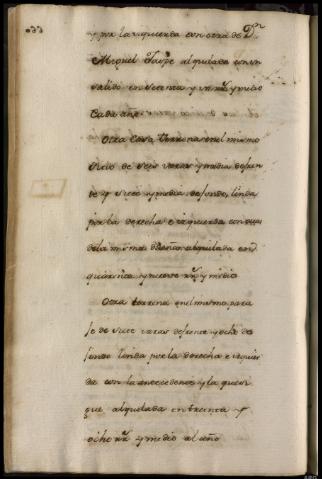 y por la izquierda con otra de Dn
Miquel Jaspe alquilada con un
valido en setenta y un rr.s y medio
cada año.
Otra Casa terrena en el mismo
sitio de seis varas y media de fren
te y siete y media de fondo, linda
por la derecha e izquierda con otras
de la misma alquilada en
quarenta y nueve rr.s y medio
Otra terrena en el mismo para
je de siete varas de frente y ocho de
fondo linda por la derecha e izquier
da con la antecedente y la que si
gue alquilada en treinta y
ocho rr.s y medio al año